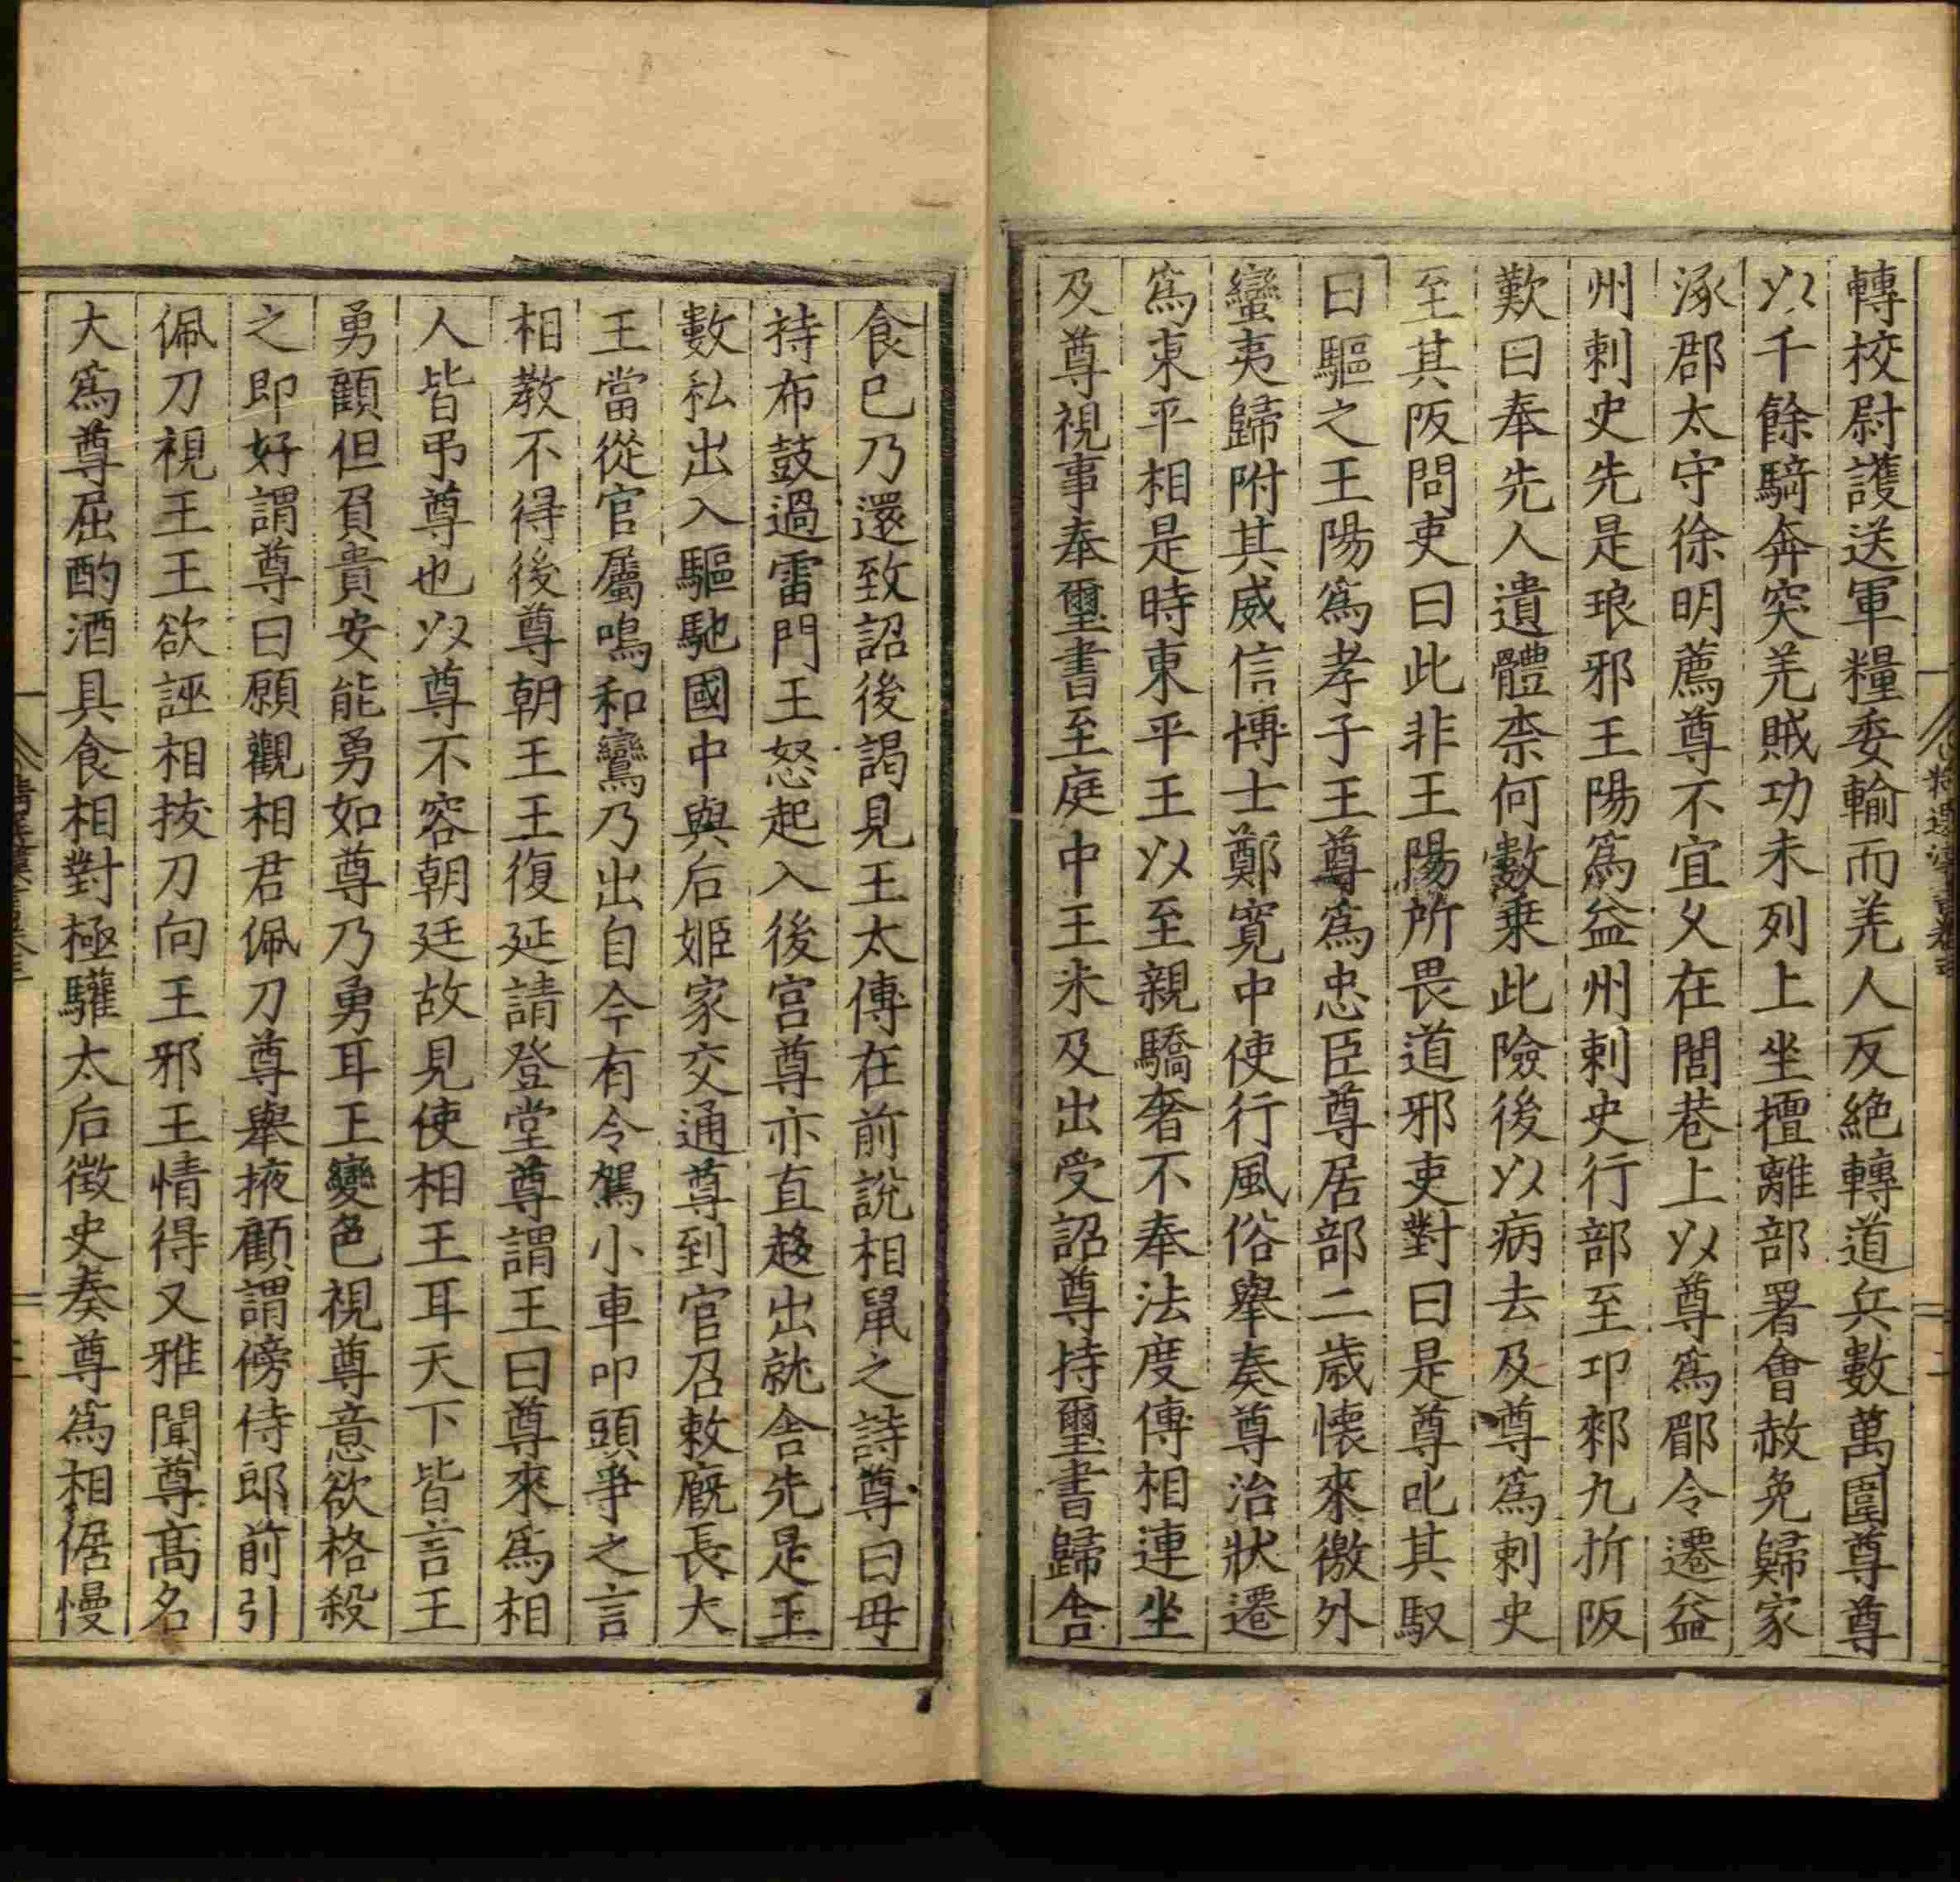 轉校尉護送軍糧委輸而羌人反絶轉道兵數萬圍尊尊
以千餘騎奔突羌賊功未列上坐擅離部署會赦免歸家
涿郡太守徐明薦尊不宜乆在閭巷上以尊爲郿令遷益
州刺史先是琅邪王陽爲益州刺史行部至卭郲九折阪
歎曰奉先人遺體柰何數乗此險後以病去及尊爲刺史
至其阪問吏曰此非王陽所畏道邪吏對曰是尊叱其馭
曰驅之王陽爲孝子王尊爲忠臣尊居部二歳懐來徼外
蠻夷歸附其威信博士鄭寛中使行風俗舉奏尊治狀遷
爲東平相是時東平王以至親驕奢不奉法度傅相連坐
及尊視事奉璽書至庭中王未及出受詔尊持璽書歸舍
食已乃還致詔後謁見王太傅在前說相鼠之詩尊曰毋
持布鼓過雷門王怒起入後宮尊亦直趍出就舎先是王
數私出入驅馳國中與后姬家交通尊到官召敕廐長大
王當從官屬鳴和鸞乃出自今有令駕小車叩頭爭之言
相教不得後尊朝王王復延請登堂尊謂王曰尊來爲相
人皆弔尊也以尊不容朝廷故見使相王耳天下皆言王
勇顧但負貴安能勇如尊乃勇耳王變色視尊意欲格殺
之即好謂尊曰願觀相君佩刀尊舉掖顧謂傍侍郎前引
佩刀視王王欲誣相拔刀向王邪王情得又雅聞尊髙名
大爲尊屈酌酒具食相對極驩太后徴史奏尊爲相倨慢